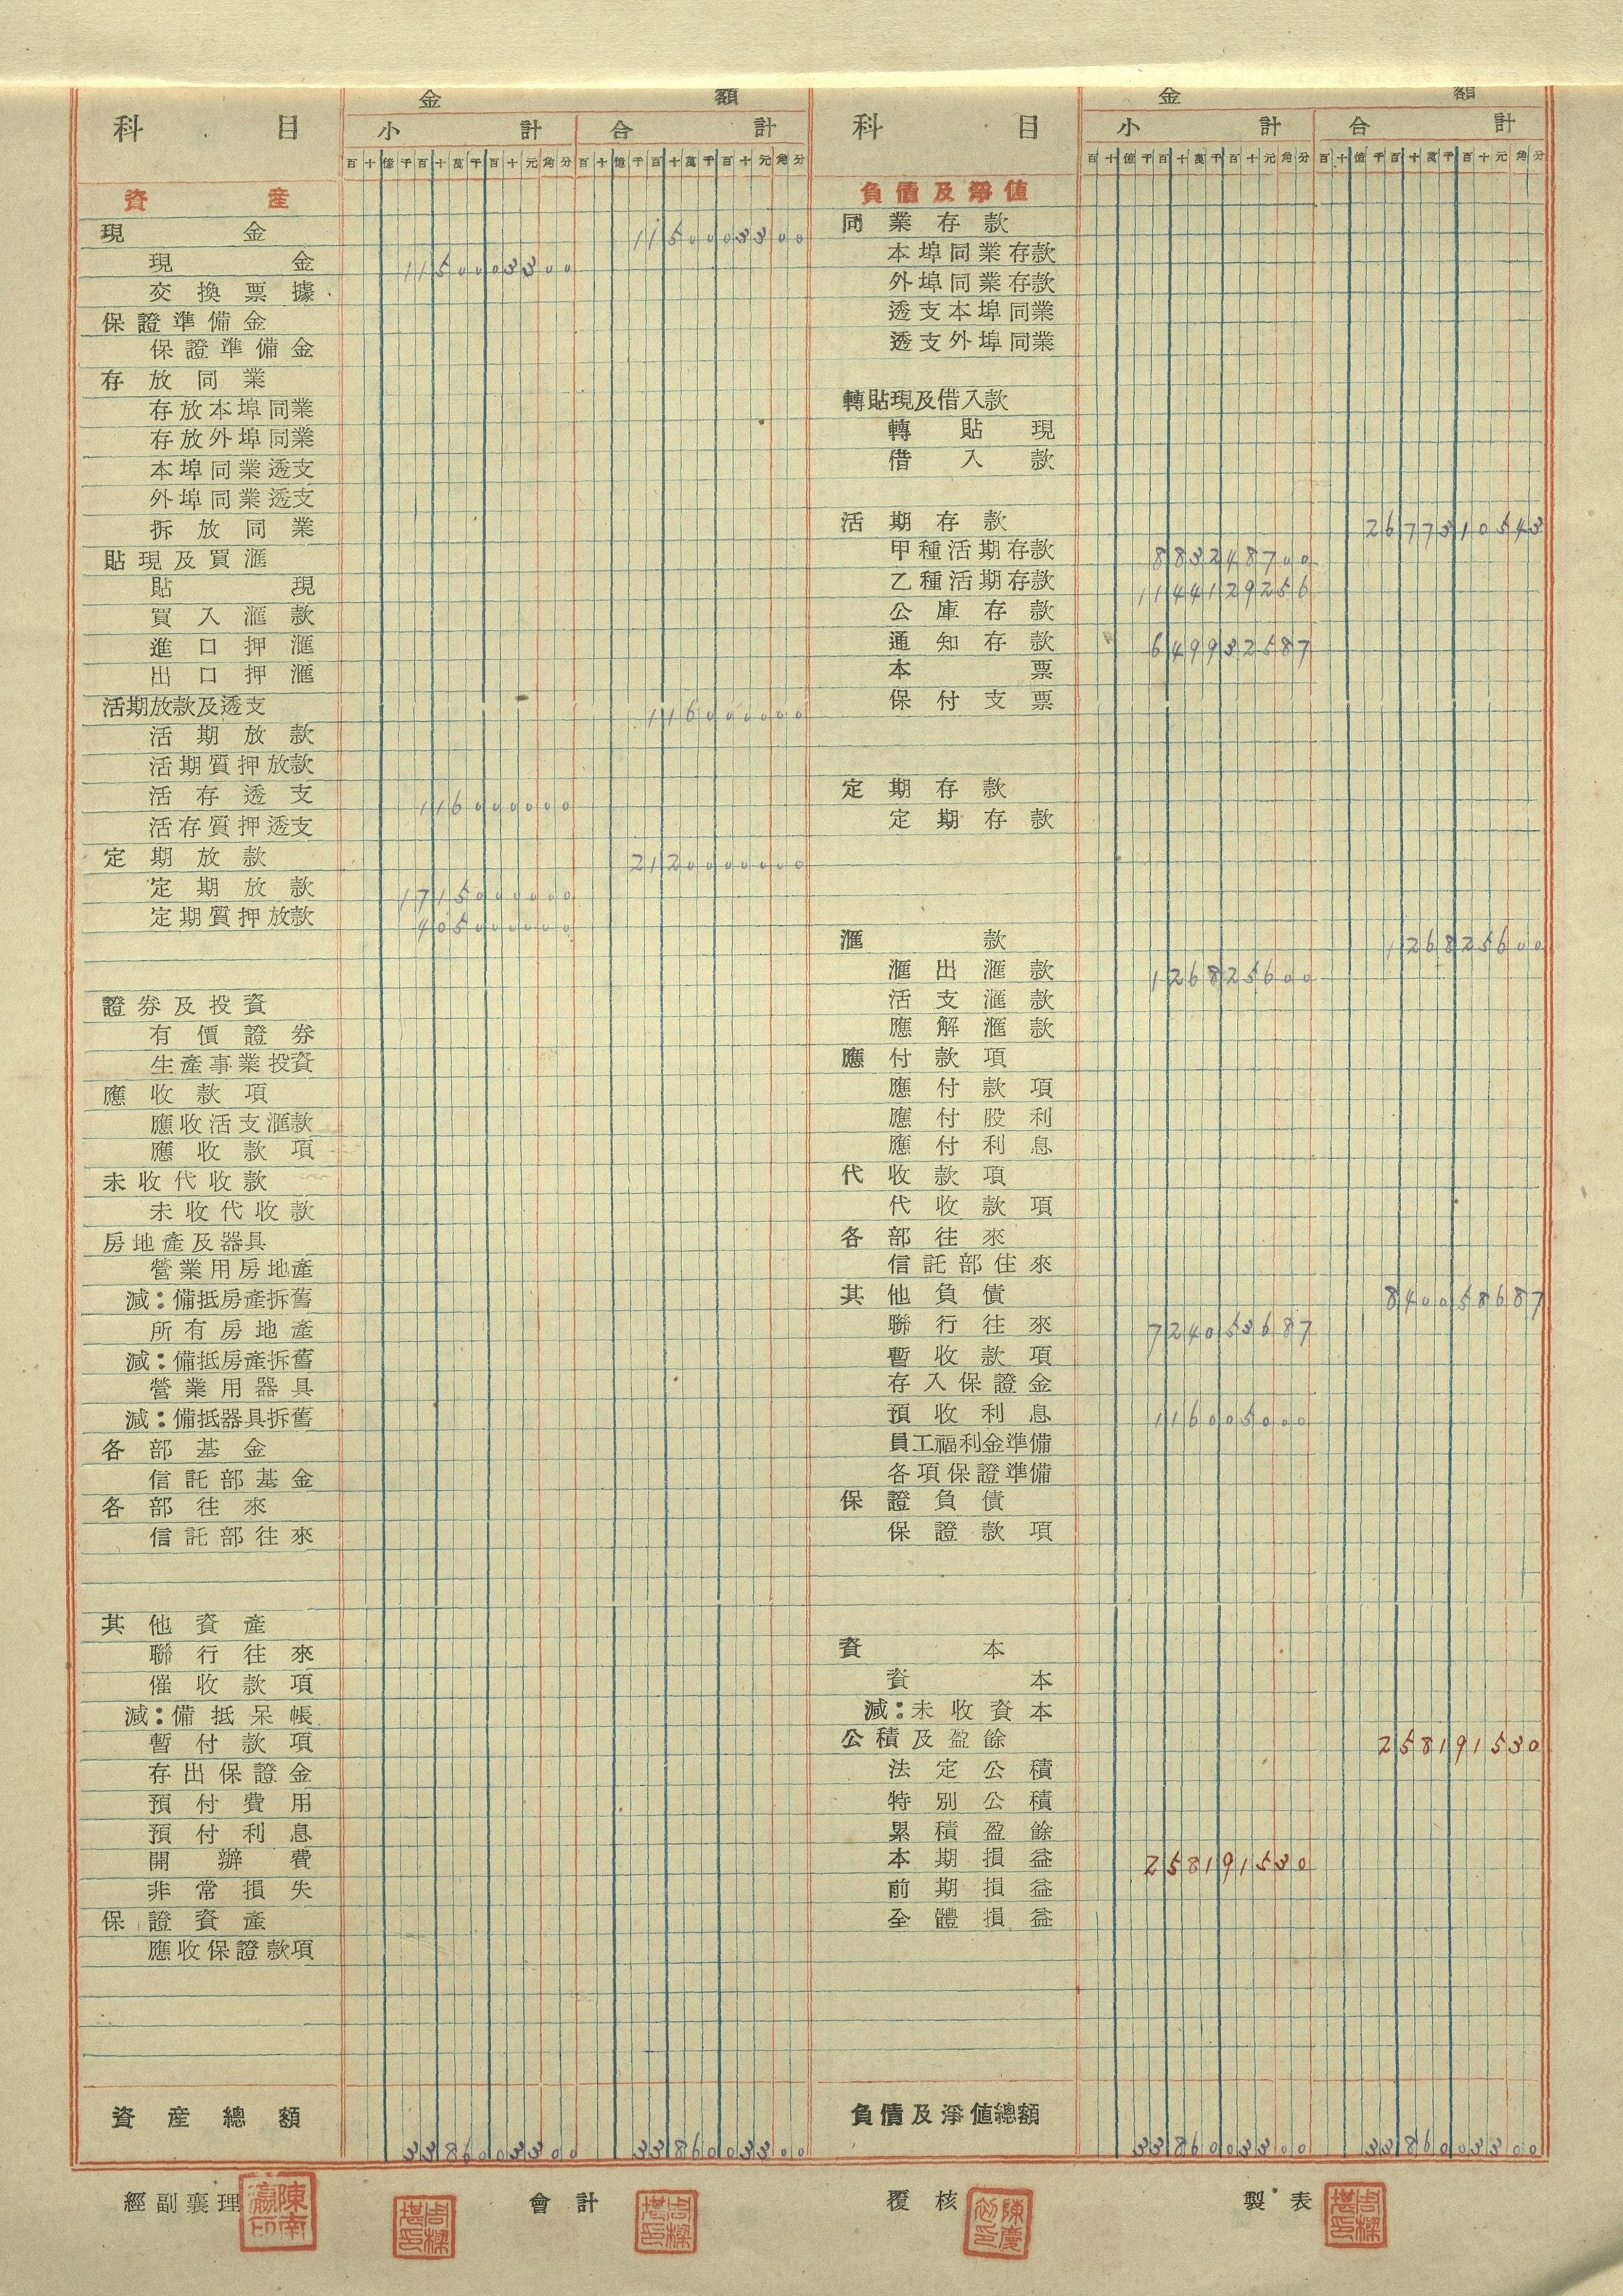 金 額
科 目
小 計 合 計
百十億千百十萬千百十元角分 百十億千百十萬千百十元角分
資 產
現 金 1150003300
現 金 1150003300
交換票據
保證準備金
保證準備金
存放同業
存放本埠同業
存放外埠同業
本埠同業透支
外埠同業透支
拆放同業
貼現及買滙
貼 現
買入滙款
進口押滙
出口押滙
活期放款及透支 116000000
活期放款
活期質押放款
活存透支 116000000
活存質押透支
定期放款 2120000000
定期放款 1715000000
定期質押放款 405000000
證券及投資
有價證券
生產事業投資
應收款項
應收活支滙款
應收款項
未收代收款
未收代收款
房地產及器具
營業用房地產
減:備抵房產拆舊
所有房地產
減:備抵房產拆舊
營業用器具
減:備抵器具拆舊
各部基金
信託部基金
各部往來
信託部往來
其他資產
聯行往來
催收款項
減:備抵呆帳
暫付款項
存出保證金
預付費用
預付利息
開辦費
非常損失
保證資產
應收保證款項
資產總額 3386003300 3386003300
金 額
科 目
小 計 合 計
百十億千百十萬千百十元角分 百十億千百十萬千百十元角分
負債及淨值
同業存款
本埠同業存款
外埠同業存款
透支本埠同業
透支外埠同業
轉貼現及借入款
轉貼現
借入款
活期存款 2677310543
甲種活期存款 883248700
乙種活期存款 1144129256
公庫存款
通知存款 649932587
本 票
保付支票
定期存款
定期存款
滙 款 126825600
滙出滙款 126825600
活支滙款
應解滙款
應付款項
應付款項
應付股利
應付利息
代收款項
代收款項
各部往來
信託部往來
其他負債 840058687
聯行往來 724053687
暫收款項
存入保證金
預收利息 116005000
員工福利金準備
各項保證準備
保證負債
保證款項
資 本
資 本
減:未收資本
公積及盈餘 258191530
法定公積
特別公積
累積盈餘
本期損益 258191530
前期損益
全體損益
負債及淨值總額 3386003300 3386003300
經副襄理 會計 覆核 製表